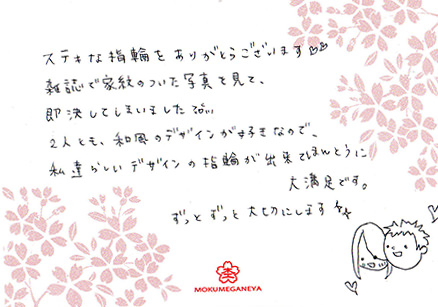 ステキな指輪をありがとうございます♡♡
雑誌で家紋のついた写真を見て、
即決してしまいました
2人とも、和風のデザインが好きなので、
私達らしいデザインの指輪が出来てほんとうに
大満足です。
ずっと ずっと 大切にします
MOKUMEGANEYA